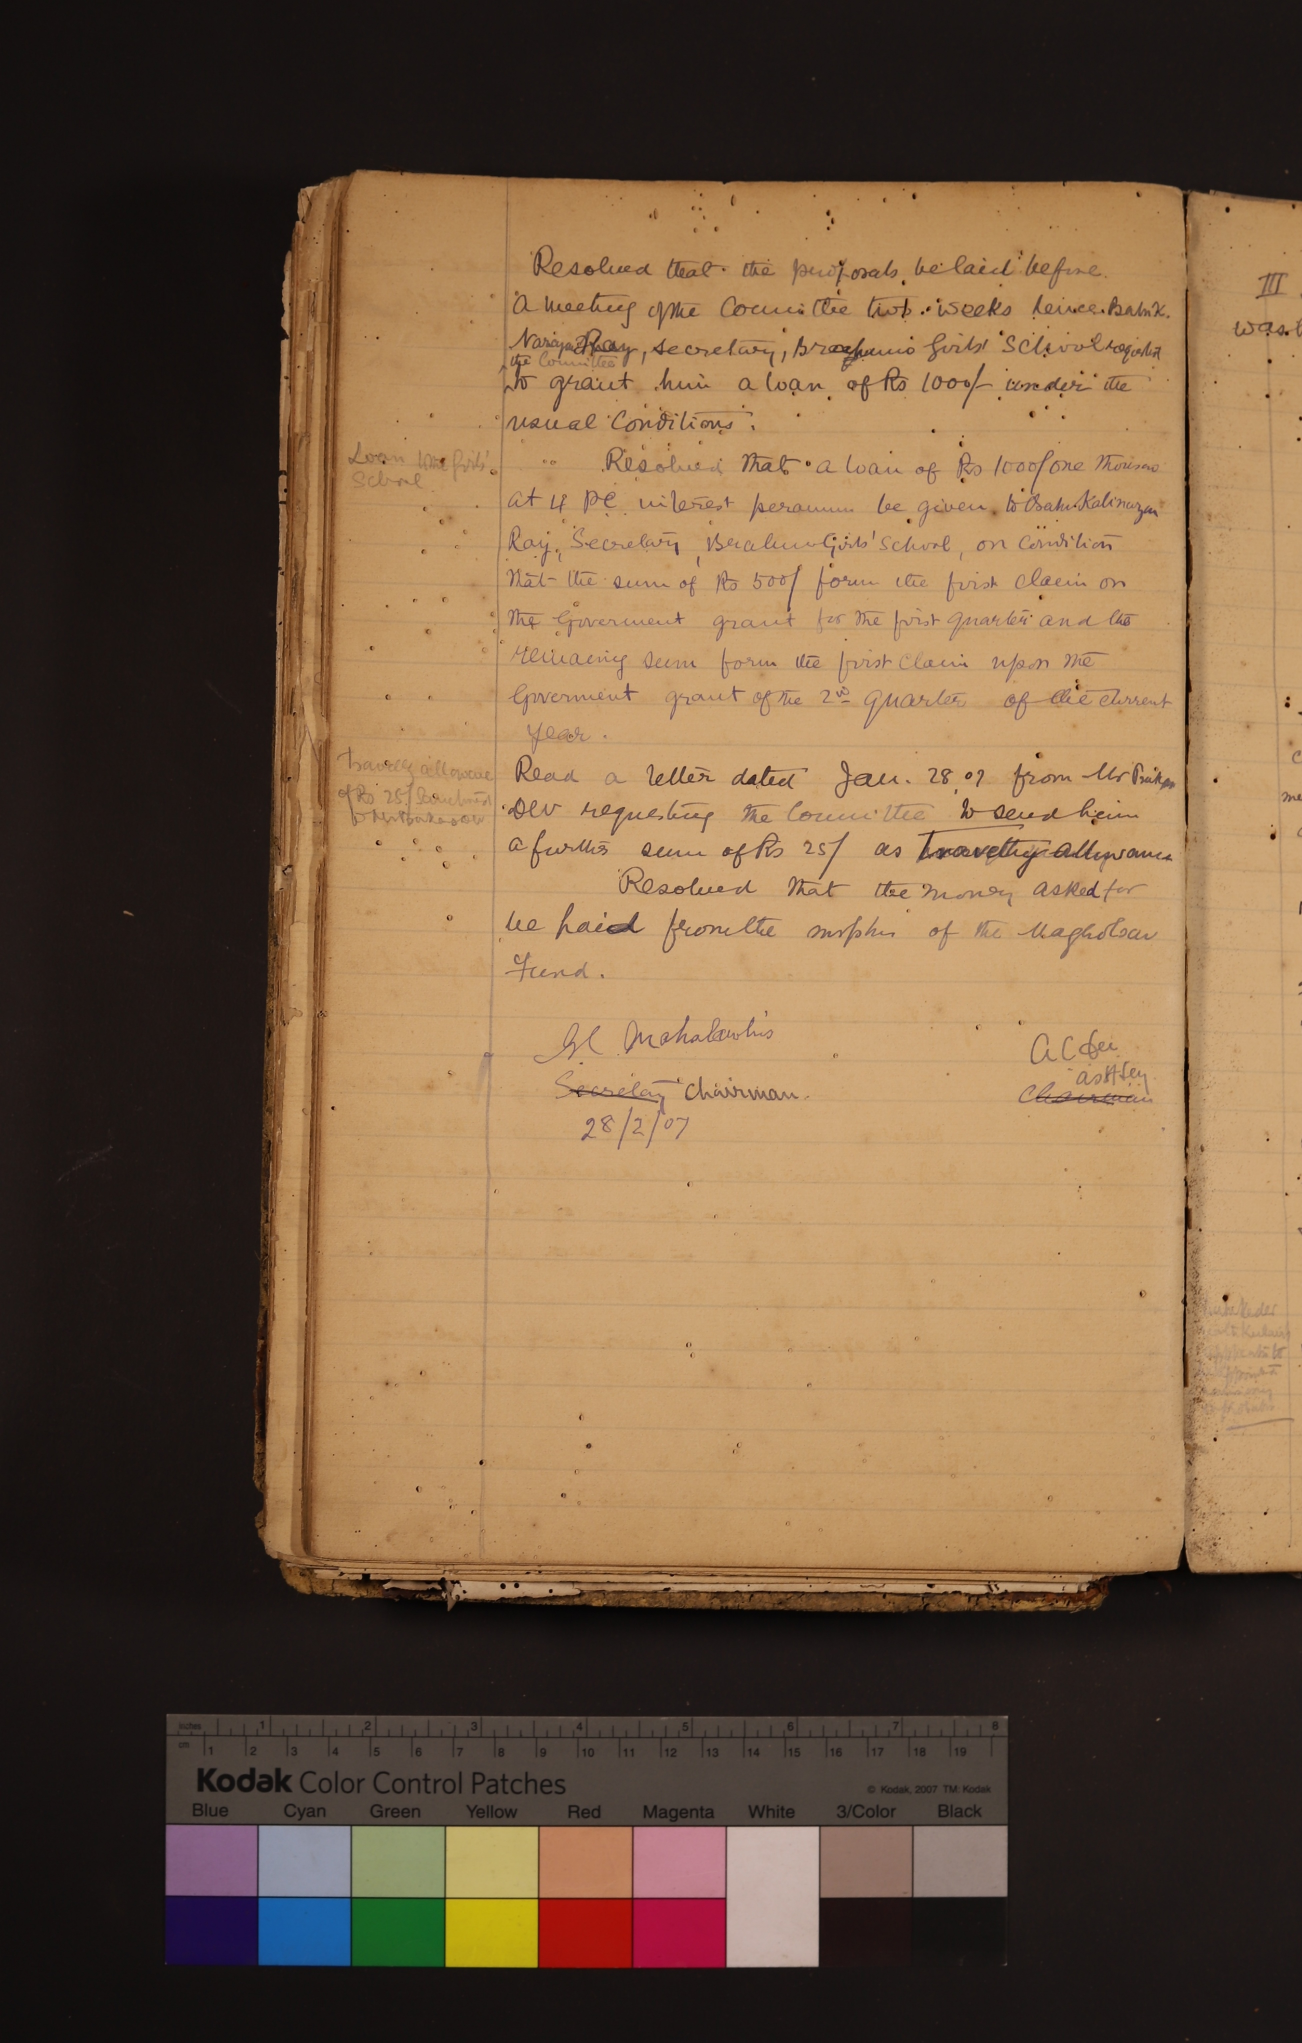 Resolved that the proposals be laid before
a meeting of the Committee two weeks hence. Babu K.
Narayan Ray, Secretary, Brahmo Girls' School requested
the Committee
to grant him a loan of Rs 1000/- under the
usual Conditions.
Loan to the Girls'
School
Resolved that a loan of Rs 1000/ one thousand
at 4 PC interest per annum be given to Babu Kalinarayan
Ray, Secretary, Brahmo Girls' School, on condition
that the sum of Rs 500/ form the first claim on
the Goverment grant for the first quarter and the
remaining sum form the first claim upon the
Goverment grant of the 2nd quarter of the current
year.
Travellg allowance
of Rs 25/
Read a letter dated Jan. 28, 07 from Mr
Dev requesting the Committee to send him
a further sum of Rs 25/ as Travellg Allowance
Resolved that the money asked for
be paid from the surplus of the Maghotsav
Fund.
Mahalanobis
Secretary Chairman.
28/2/07
A C Sen
Asst Sec
Chairman
III
was
inches 1 2 3 4 5 6 7 8
cm 1 2 3 4 5 6 7 8 9 10 11 12 13 14 15 16 17 18 19
Kodak Color Control Patches
© Kodak, 2007 TM: Kodak
Blue Cyan Green Yellow Red Magenta White 3/Color Black